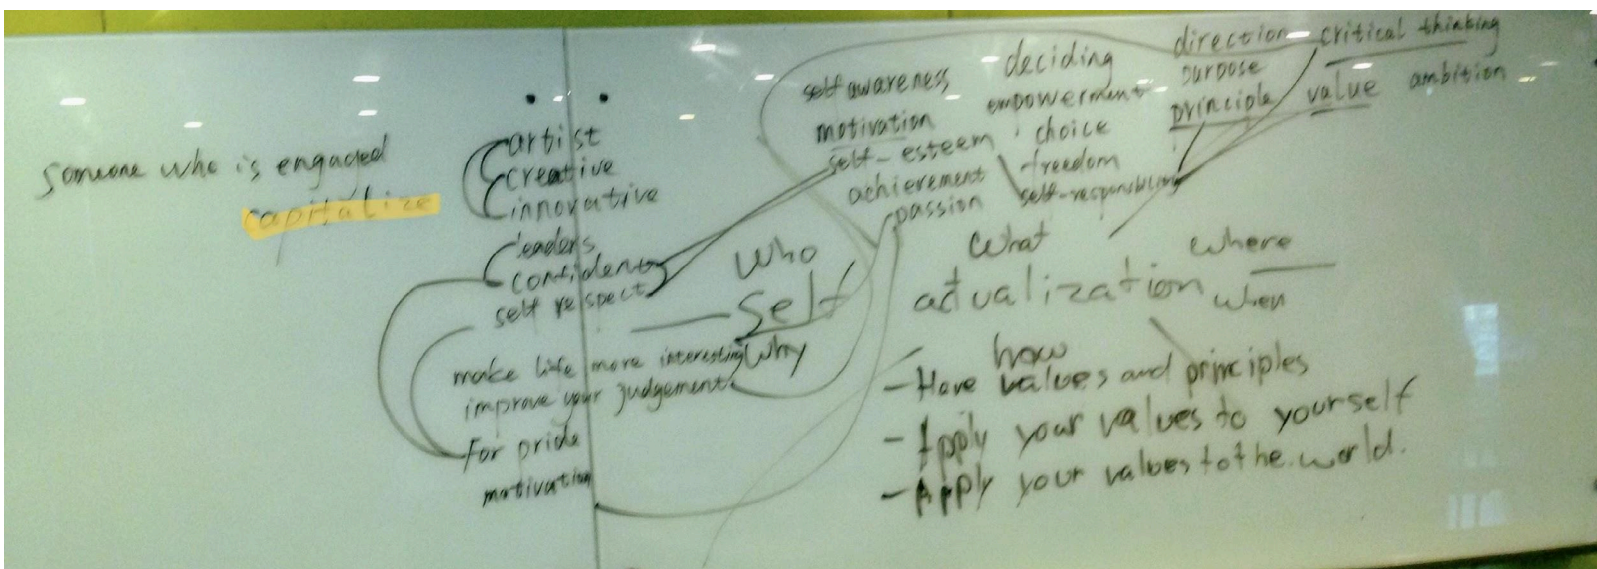 someone who is engaged
capitalize
artist
creative
innovative
leaders
confident
self respect
make life more interesting
improve your judgement
For pride
motivation
who
self
why
self awareness
motivation
self-esteem
achievement
passion
deciding
empowerment
choice
freedom
self-responsibility
direction
purpose
principle
critical thinking
value
ambition
what
actualization
where
when
how
- Have values and principles
- Apply your values to yourself
- Apply your values to the world.